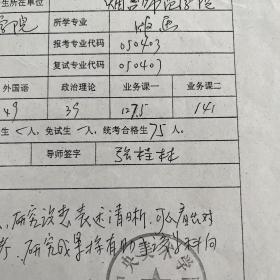 生所在单位
学院 所学专业 油画
报考专业代码 050403
复试专业代码 050403
外国语 政治理论 业务课一 业务课二
49 39 127.5 141
生 人，免试生 人，统考合格生75人。
导师签字 张桂林
研究设想表述清晰，可
研究成果将有助